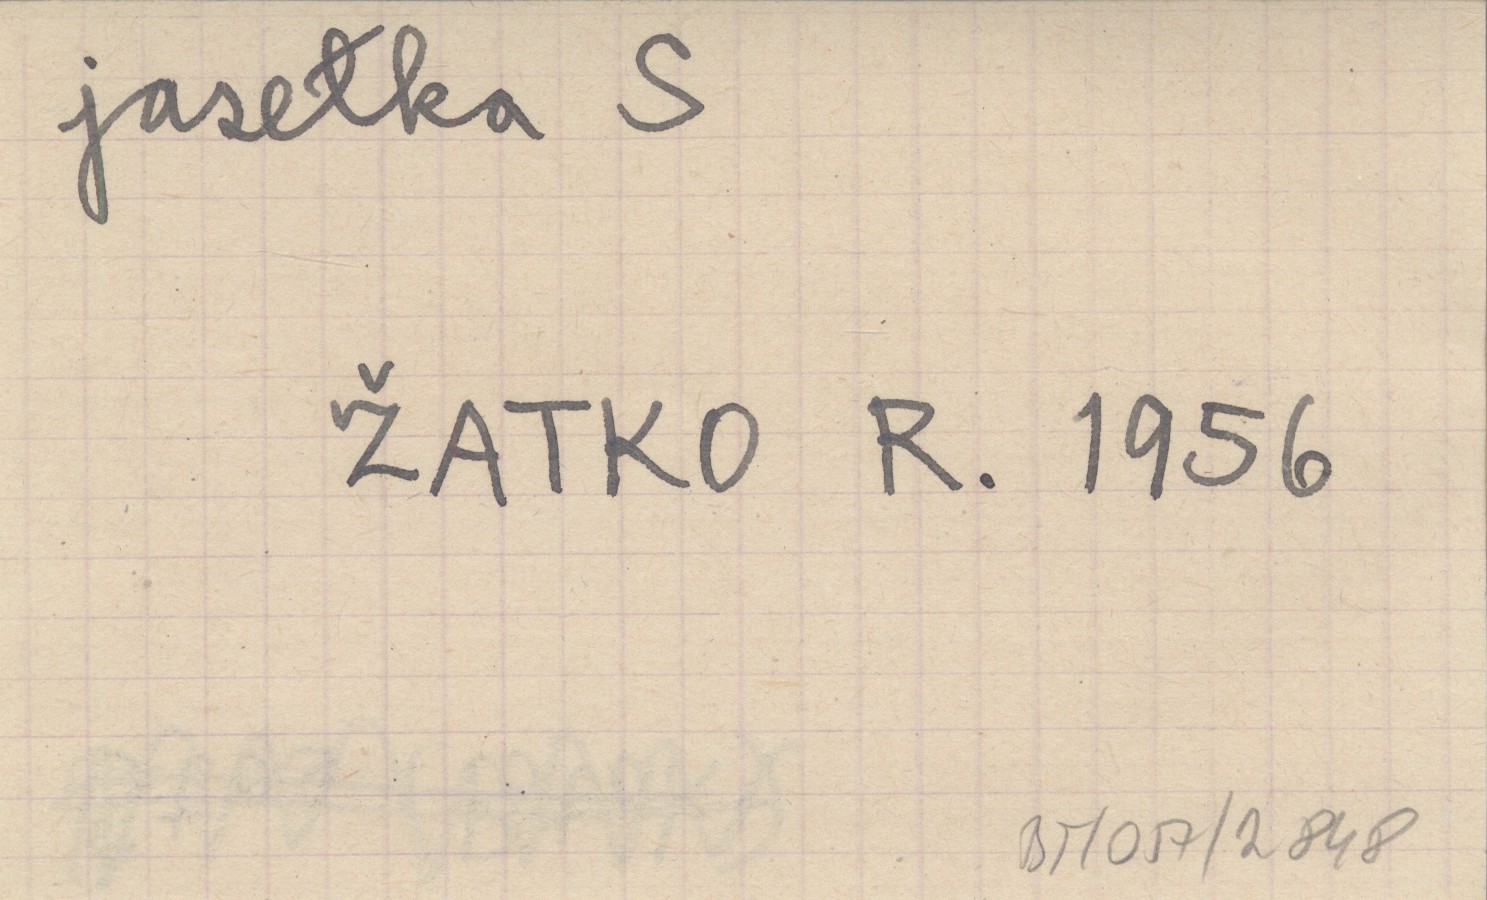 jasetka S
ŽATKO R. 1956
BT/057/2 848